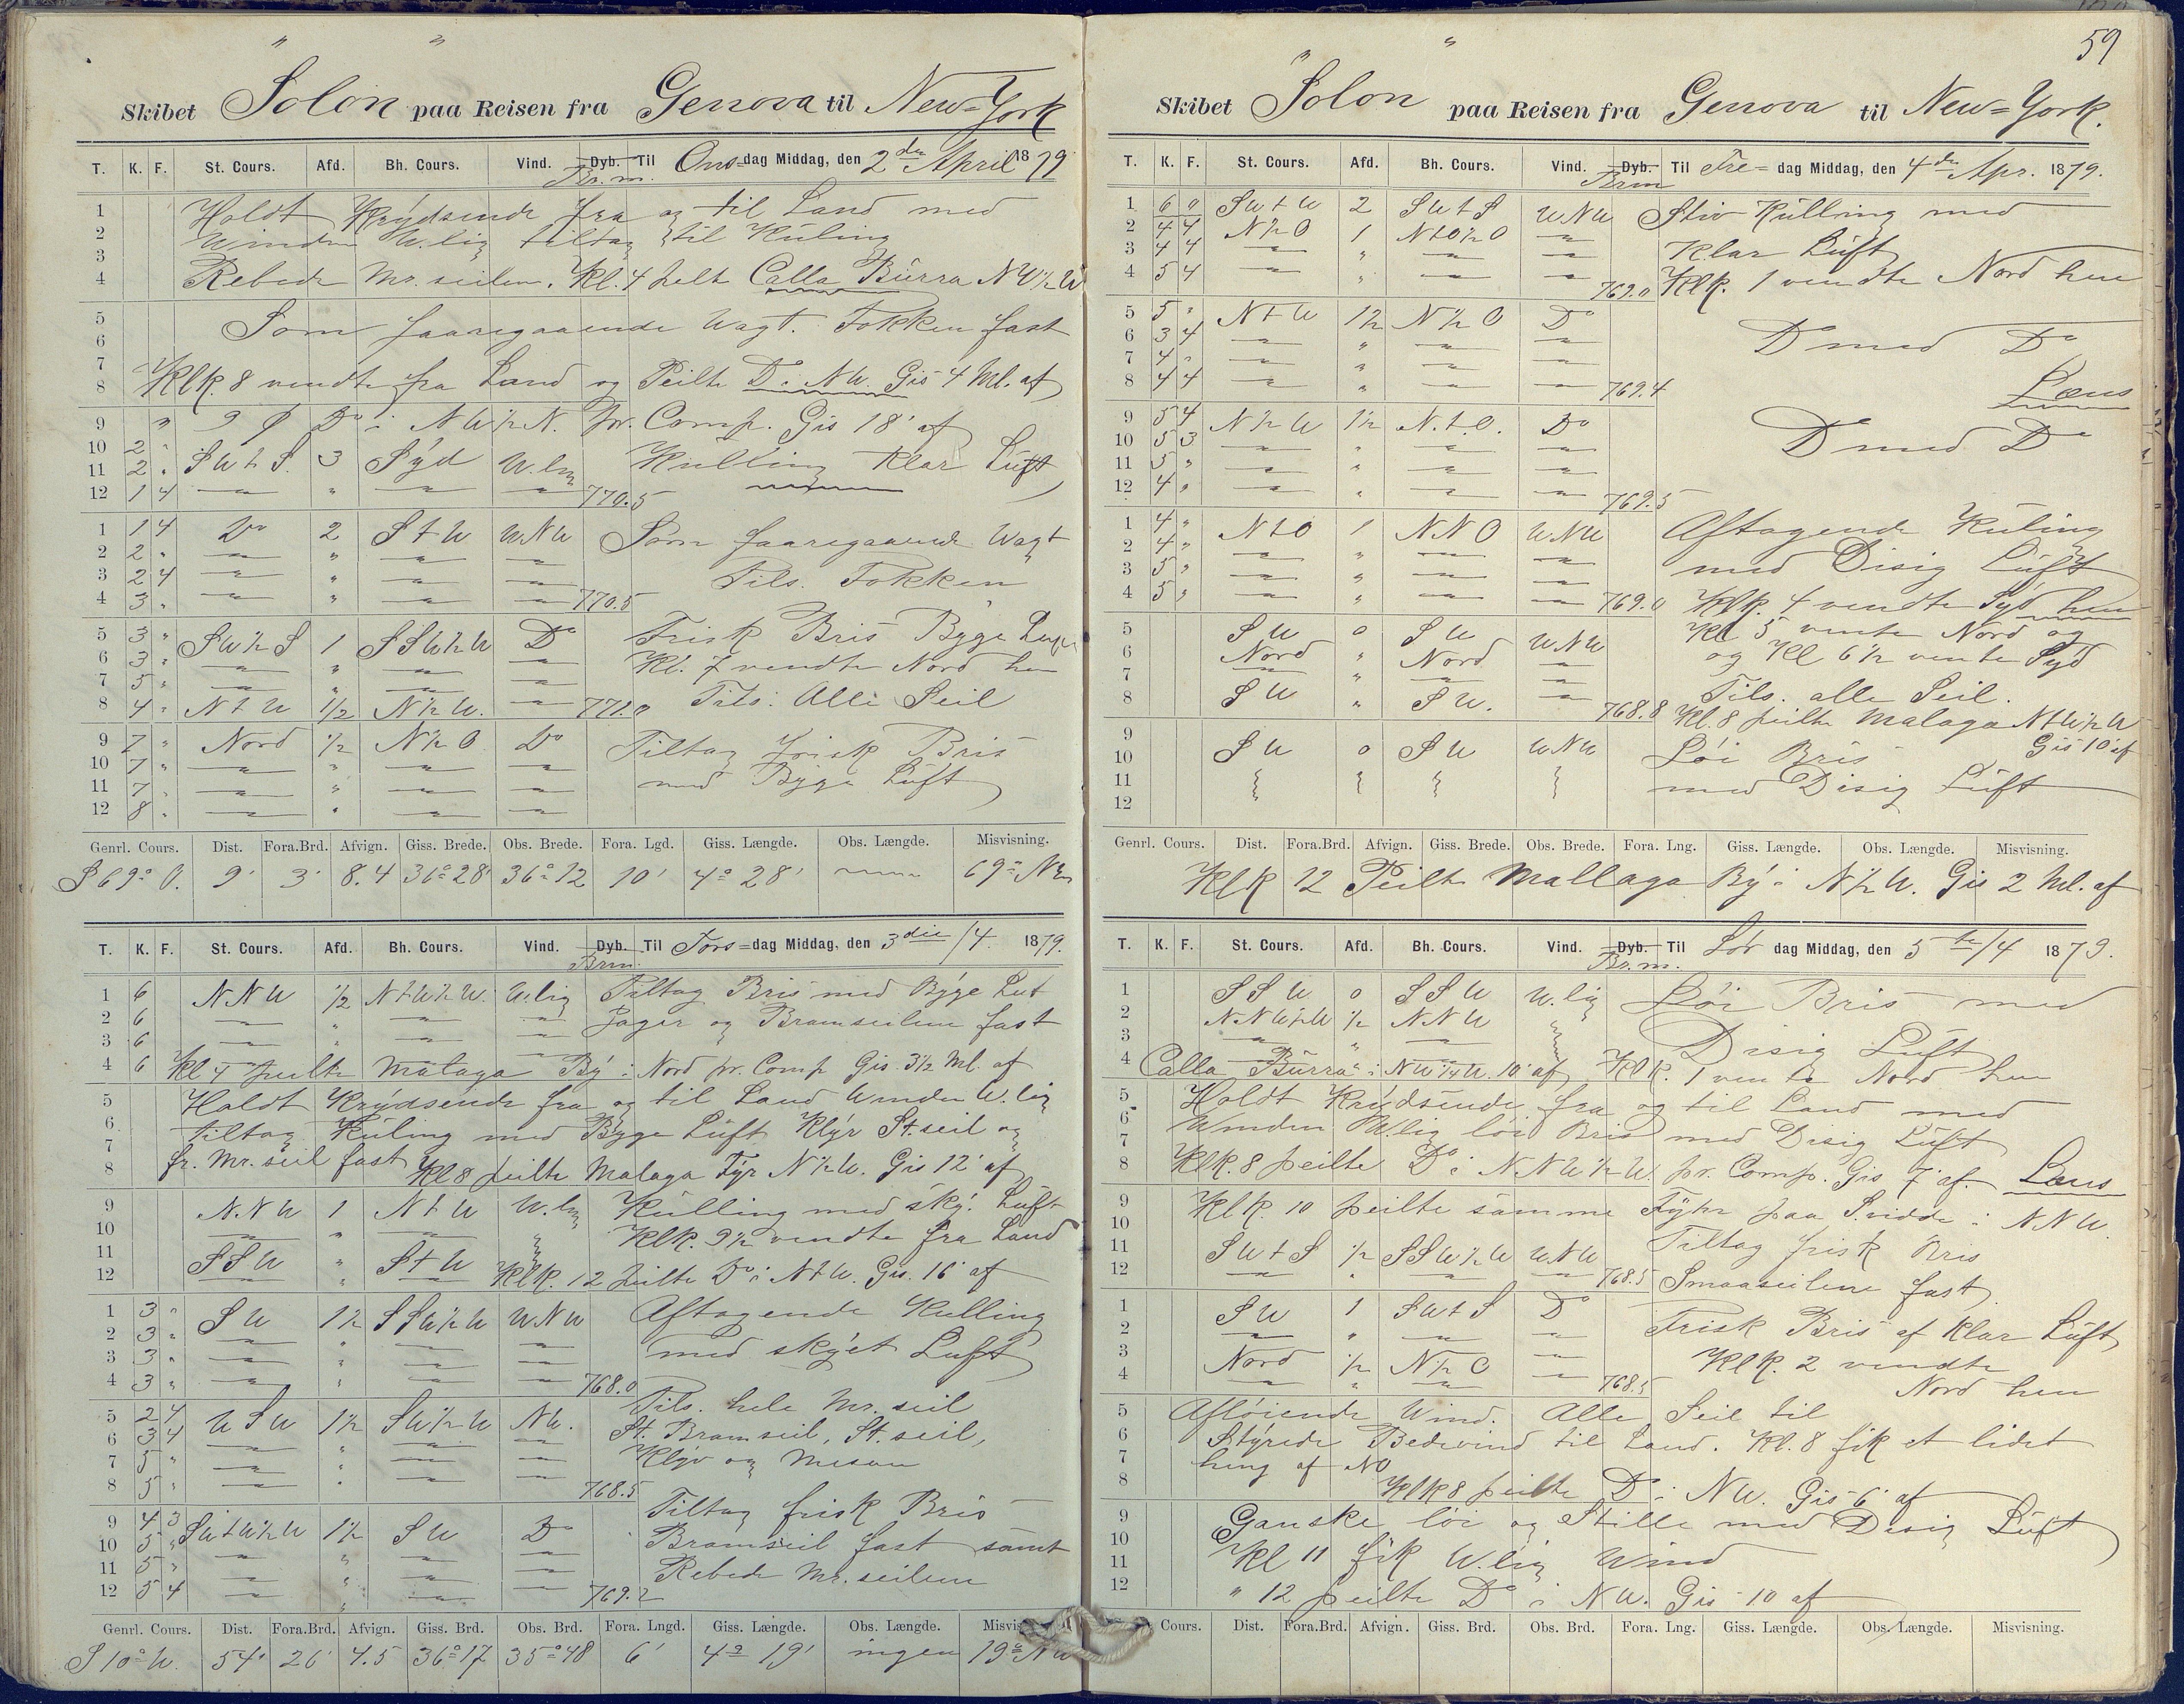 Skibet "Solon" paa Reisen fra Genova til New=York
T. K. F. St. Cours. Afd. Bh. Cours. Vind. Dyb. Br.m. Til Ons=dag Middag, den 2den April 1879
1 Holdt Krydsende fra og til Land med
2 Winden W.lig tiltag til Kuling
3
4 Rebede Mr. seilen. Kl. 4 peilt Calla Burra NW½W
5 Som foaregaaende Wagt. Fokken fast
6
7
8 Klk. 8 vendte fra Land og Peilte Do i NW. Gis 4 Ml. af
9 " 9 Do i NW½N. pr. Comp. Gis 18' af
10 2 "
11 2 " SWtS. 3 Syd W.lig Kulling Klar Luft
12 1 4 — " — — 770.5
1 1 4 Do 2 StW WNW Som foaregaaende Wagt
2 2 " — " — —
3 2 4 — " — — Tils. Fokken
4 3 " — " — — 770.5
5 3 " SW½S 1 SSW½W Do Frisk Bris Byge Luft
6 3 " — — — Kl. 7 vendte Nord hen
7 5 " — " — —
8 4 " NtW ½ N½W. — 771.0 Tils. Alle Seil
9 7 " Nord ½ N½O Do Tiltag frisk Bris
10 7 " — " — —
11 7 " — " — — med Byge Luft
12 8 " — " — —
Genrl. Cours. Dist. Fora.Brd. Afvign. Giss. Brede. Obs. Brede. Fora. Lgd. Giss. Længde. Obs. Længde. Misvisning.
S69°O. 9' 3' 8.4 36°28' 36°12 10' 4°28' 
T. K. F. St. Cours. Afd. Bh. Cours. Vind. Dyb. Brm. Til Tors=dag Middag, den 3die/4 1879.
1 6 NNW ½ NtW½W. W.lig Tiltag Bris med Byge Luft
2 6 — " — — Jager og Bramseilene fast
3 6 — " — —
4 6 Kl 4 peilte Malaga By i Nord pr. Comp Gis. 3½ Ml. af
5 Holdt Krydsende fra og til Land Winden W.lig
6 tiltag Kuling med Byge Luft Klyv St. seil og
7 fr. Mr. seil fast
8 Kl 8 peilte Malaga Fyr N½W. Gis 12' af
9 NNW 1 NtW W.lig Kulling med sky. Luft
10 — " — Klk. 9½ vendte fra Land
11 SSW " StW
12 — " — Klk. 12 peilte Do i NtW. Gis. 16' af
1 3 " SW 1½ SSW½W WNW Aftagende Kulling
2 3 " — " — —
3 3 " — " — — med skyet Luft
4 3 " — " — — 768.0
5 2 4 WSW 1½ SW½W NW. Tils. hele Mr. seil
6 3 4 — " — — St. Bramseil, St. seil,
7 5 " — " — — Klyv og Mesan
8 5 " — " — — 768.5
9 4 3 SWtW½W 1½ SW Do Tiltag frisk Bris
10 5 " — " — — Bramseil fast samt
11 5 " — " — — Rebede Mr. seilene
12 5 4 — " — — 769.2
Genrl. Cours. Dist. Fora.Brd. Afvign. Giss. Brd. Obs. Brd. Fora. Lngd. Giss. Længde. Obs. Længde. Misvis
S10°W. 54' 26' 4.5 36°17 35°48 6' 4°19' ingen 19° NW
59
Skibet "Solon" paa Reisen fra Genova til New=York.
T. K. F. St. Cours. Afd. Bh. Cours. Vind. Dyb. Brm Til Fre=dag Middag, den 4de Apr. 1879.
1 6 0 SWtW 2 SWtS WNW Stiv Kulling med
2 4 4 N½O 1 NtO½O —
3 4 4 — " — — Klar Luft
4 5 4 — " — — 769.0 Klk. 1 vendte Nord hen
5 5 " NtW 1½ N½O Do
6 3 4 — " — — Do med Do
7 4 " — " — —
8 4 4 — " — — 769.4 Læns
9 5 4 N½W 1½ N.t.O. Do
10 5 3 — " — — Do med Do
11 5 " — " — —
12 4 " — " — — 769.5
1 4 " NtO 1 NNO WNW Aftagende Kuling
2 4 " — " — —
3 5 " — " — — med Disig Luft
4 5 " — " — — 769.0 Klk. 4 vendte Syd hen
5 SW 0 SW WNW Kl 5 vente Nord og
6 Nord " Nord — og Kl 6½ vente Syd
7 — "
8 SW " SW. — 768.8 Tils. alle Seil.
Kl. 8 peilte Malaga NtW½W
9 Gis 10' af
10 SW 0 SW WNW Löi Bris
11 med Disig Luft
12
Genrl. Cours. Dist. Fora.Brd. Afvign. Giss. Brede. Obs. Brede. Fora. Lng. Giss. Længde. Obs. Længde. Misvisning.
Klk 12 Peilte Mallaga By i N½W. Gis 2 Ml. af
T. K. F. St. Cours. Afd. Bh. Cours. Vind. Dyb. Br.m. Til Lör dag Middag, den 5te/4 1879.
1 SSW 0 SSW W.lig Löi Bris med
2 NNW½W ½ NNW
3 — " — Disig Luft
4 Calla Burra i NW¼W. 10' af Klk. 1 vente Nord hen
5 Holdt Krydsende fra og til Land med
6 Winden W.lig löi Bris med Disig Luft
7
8 Klk. 8 peilte Do i NNW½W. pr. Comp. Gis 7' af. Læns
9 Klk. 10 peilte samme Fyhr paa S.vidde i NNW.
10
11 SWtS ½ SSW½W WNW Tiltag frisk Bris
12 — " — — 768.5 Smaaseilene fast
1 SW 1 SWtS Do
2 — " — — Frisk Bris af Klar Luft
3 Nord ½ N½O — Klk. 2 vendte
4 — " — — 768.5 Nord hen
5 Aflöiende Wind. Alle Seil til
6 Styrede Bedevind til Land. Kl. 8 fik et lidet
7 hing af NO
8 Klk 8 peilte Do i NW. Gis 6' af
9 Ganske löi og Stille med Disig Luft
10
11 Kl 11 fik W.lig Wind
12 " 12 peilte Do i NW. Gis 10 af
Cours. Dist. Fora.Brd. Afvign. Giss. Brd. Obs. Brd. Fora. Lng. Giss. Længde. Obs. Længde. Misvisning.